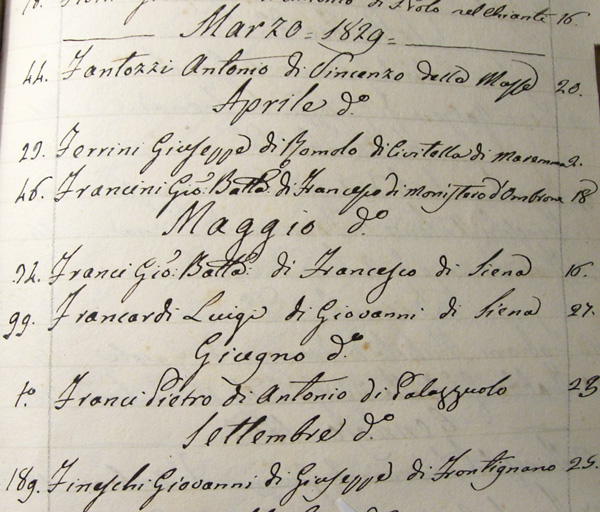 di Antonio di Nolo nel Chianti 16.
Marzo = 1829 =
44. Fantozzi Antonio di Vincenzo della Massa 20.
Aprile d.o
29. Ferrini Giuseppe di Romolo di Civitella di Maremma 2.
46. Francini Gio: Batta: di Francesco di Monistero d'Ombrone 18
Maggio d.o
72. Franci Gio: Batta: di Francesco di Siena 16.
99. Francardi Luigi di Giovanni di Siena 27.
Giugno d.o
1.o Franci Pietro di Antonio di Palazzuolo 23
Settembre d.o
189. Fineschi Giovanni di Giuseppe di Frontignano 25.